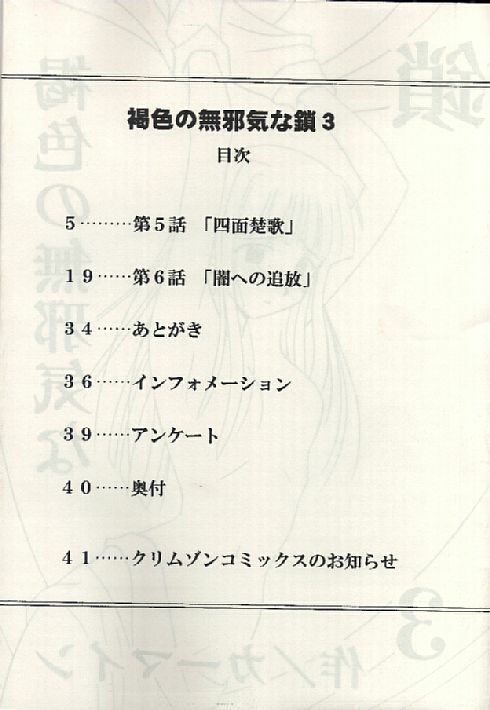 褐色の無邪気な鎖3
目次
5………第5話 「四面楚歌」
19……第6話 「闇への追放」
34……あとがき
36……インフォメーション
39……アンケート
40……奥付
41……クリムゾンコミックスのお知らせ
鎖
褐色の無邪気な
3
作/カーマイン